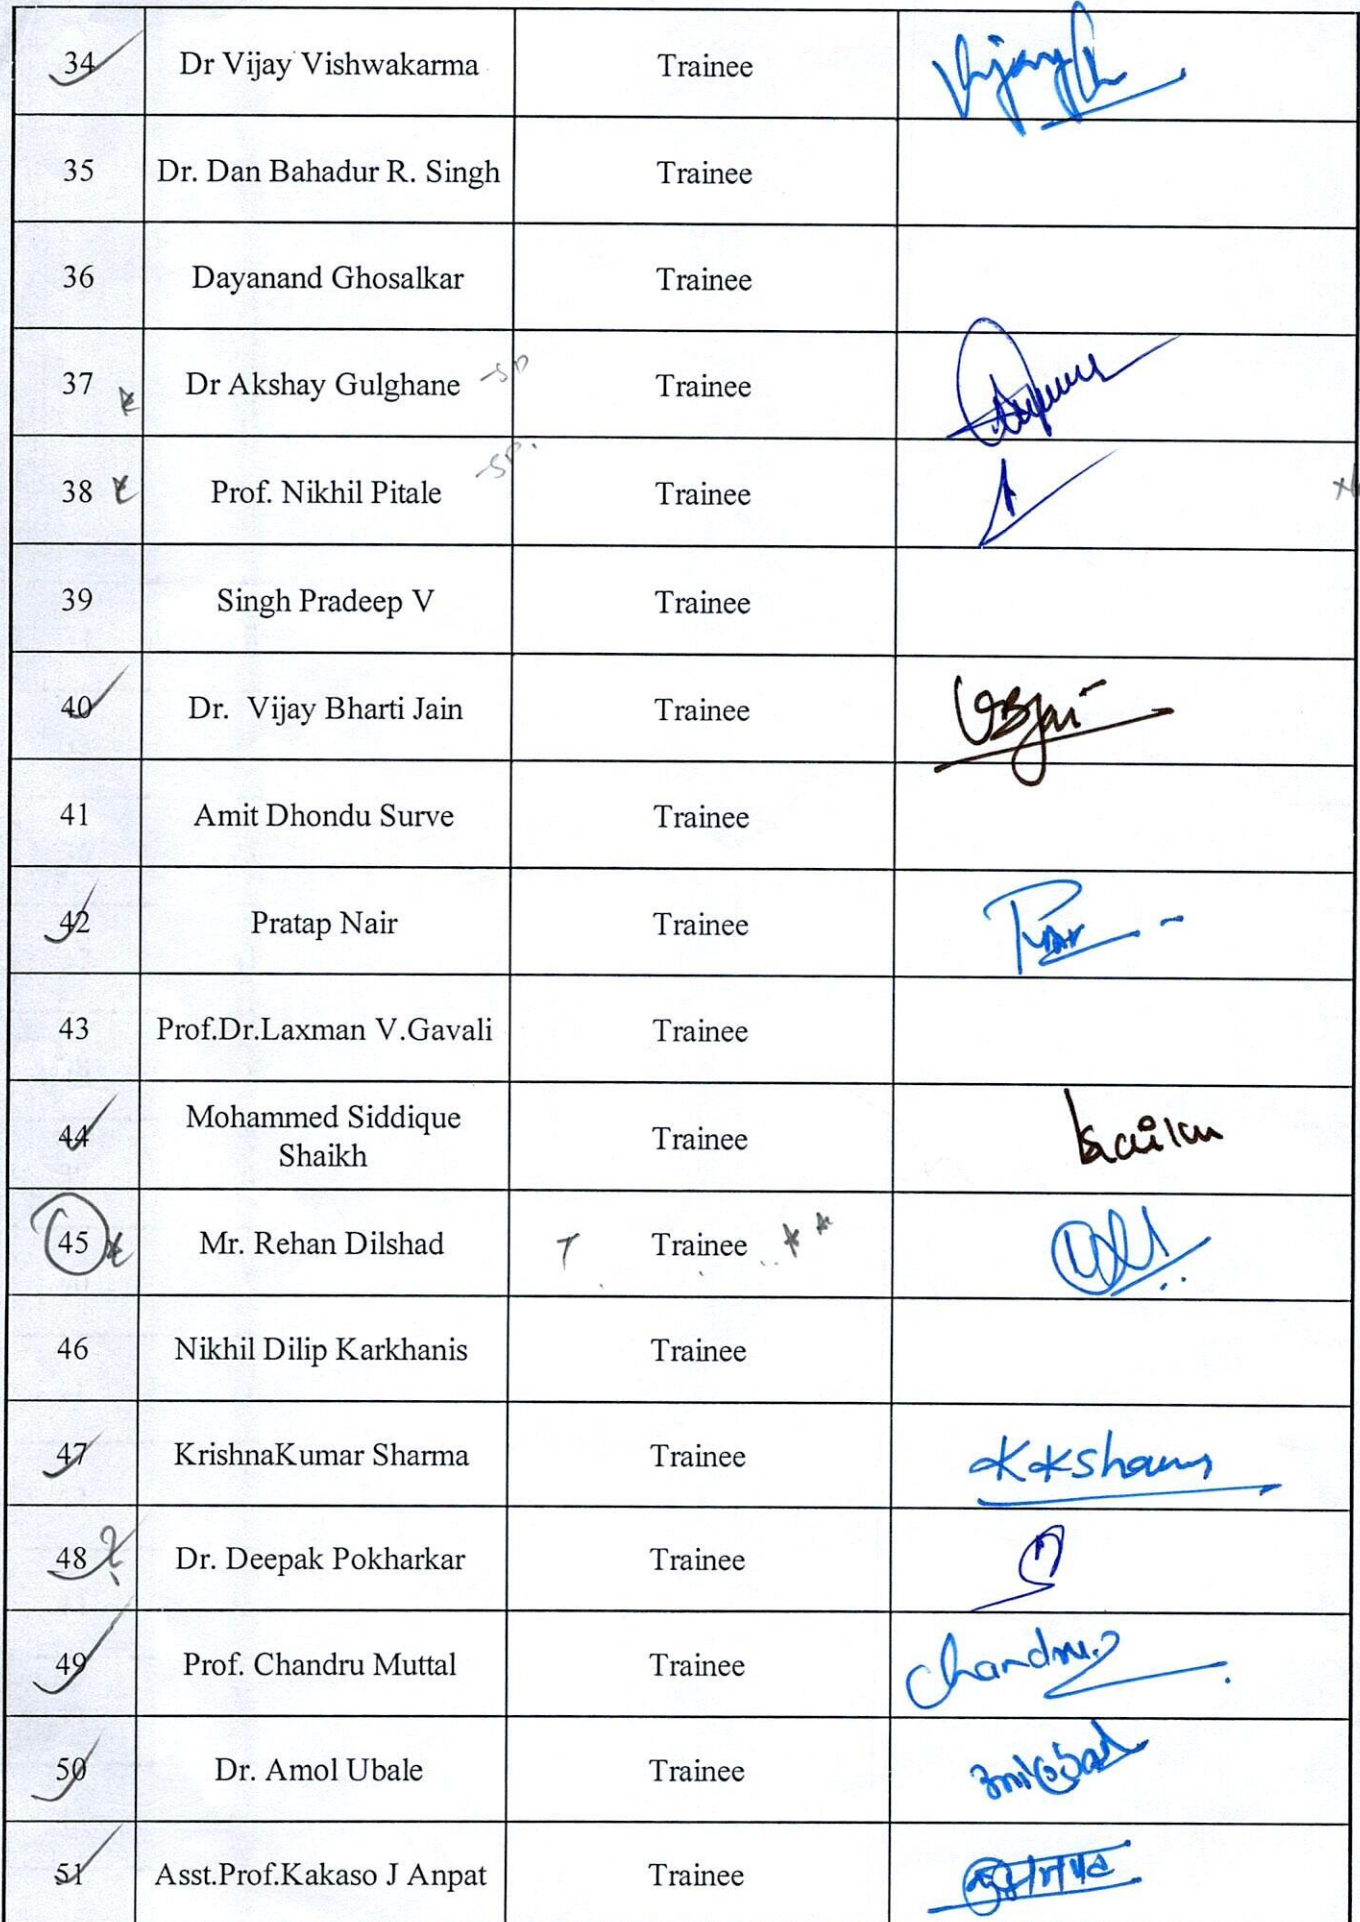 34 Dr Vijay Vishwakarma Trainee
35 Dr. Dan Bahadur R. Singh Trainee
36 Dayanand Ghosalkar Trainee
37 Dr Akshay Gulghane -SP Trainee
38 Prof. Nikhil Pitale -SP. Trainee
39 Singh Pradeep V Trainee
40 Dr. Vijay Bharti Jain Trainee
41 Amit Dhondu Surve Trainee
42 Pratap Nair Trainee
43 Prof.Dr.Laxman V.Gavali Trainee
44 Mohammed Siddique
Shaikh Trainee
45 Mr. Rehan Dilshad T Trainee
46 Nikhil Dilip Karkhanis Trainee
47 KrishnaKumar Sharma Trainee
48 ? Dr. Deepak Pokharkar Trainee
49 Prof. Chandru Muttal Trainee Chandru
50 Dr. Amol Ubale Trainee
51 Asst.Prof.Kakaso J Anpat Trainee